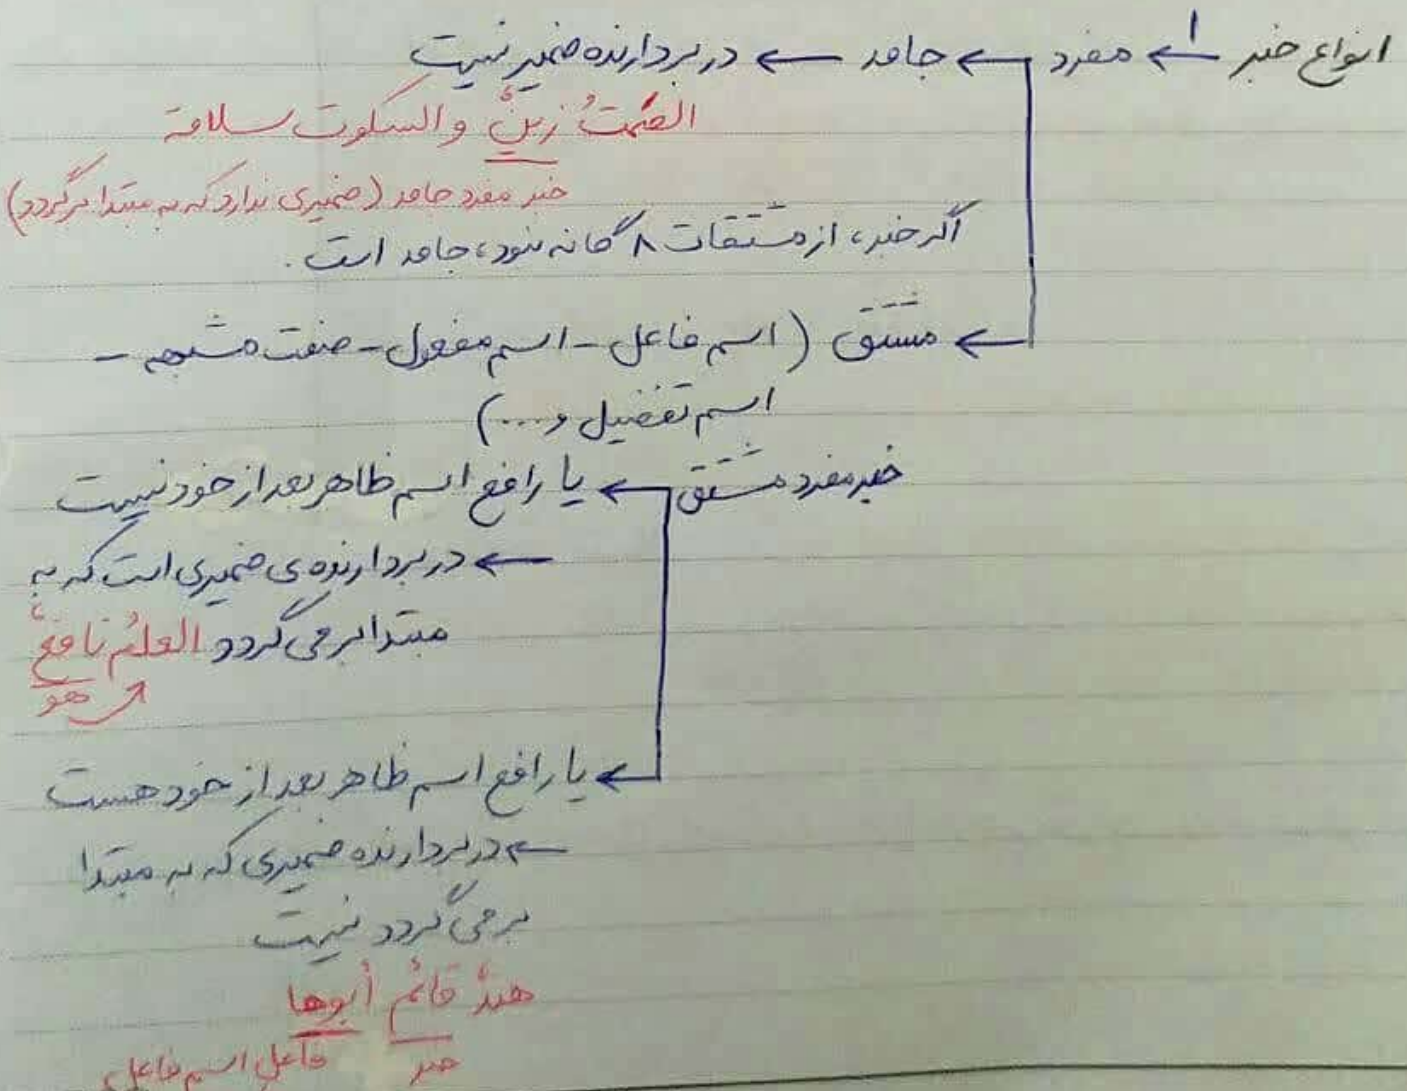 انواع خبر ← ۱ مفرد ← جامد ← در بردارنده ضمیر نیست
الصَّمتُ زینٌ و السکوت سلامة
خبر مفرد جامد (ضمیری ندارد که به مبتدا برگردد)
اگر خبر، از مشتقات ۸ گانه نبود، جامد است.
← مشتق (اسم فاعل - اسم مفعول - صفت مشبهه -
اسم تفضیل و ....)
خبر مفرد مشتق ← یا رافع اسم ظاهر بعد از خود نیست
← در بردارنده ی ضمیری است که به
مبتدا بر می گردد العلمُ نافعٌ
هو
← یا رافع اسم ظاهر بعد از خود هست
← در بردارنده ضمیری که به مبتدا
بر می گردد نیست
هندٌ قائمٌ أبوها
خبر فاعلِ اسم فاعل